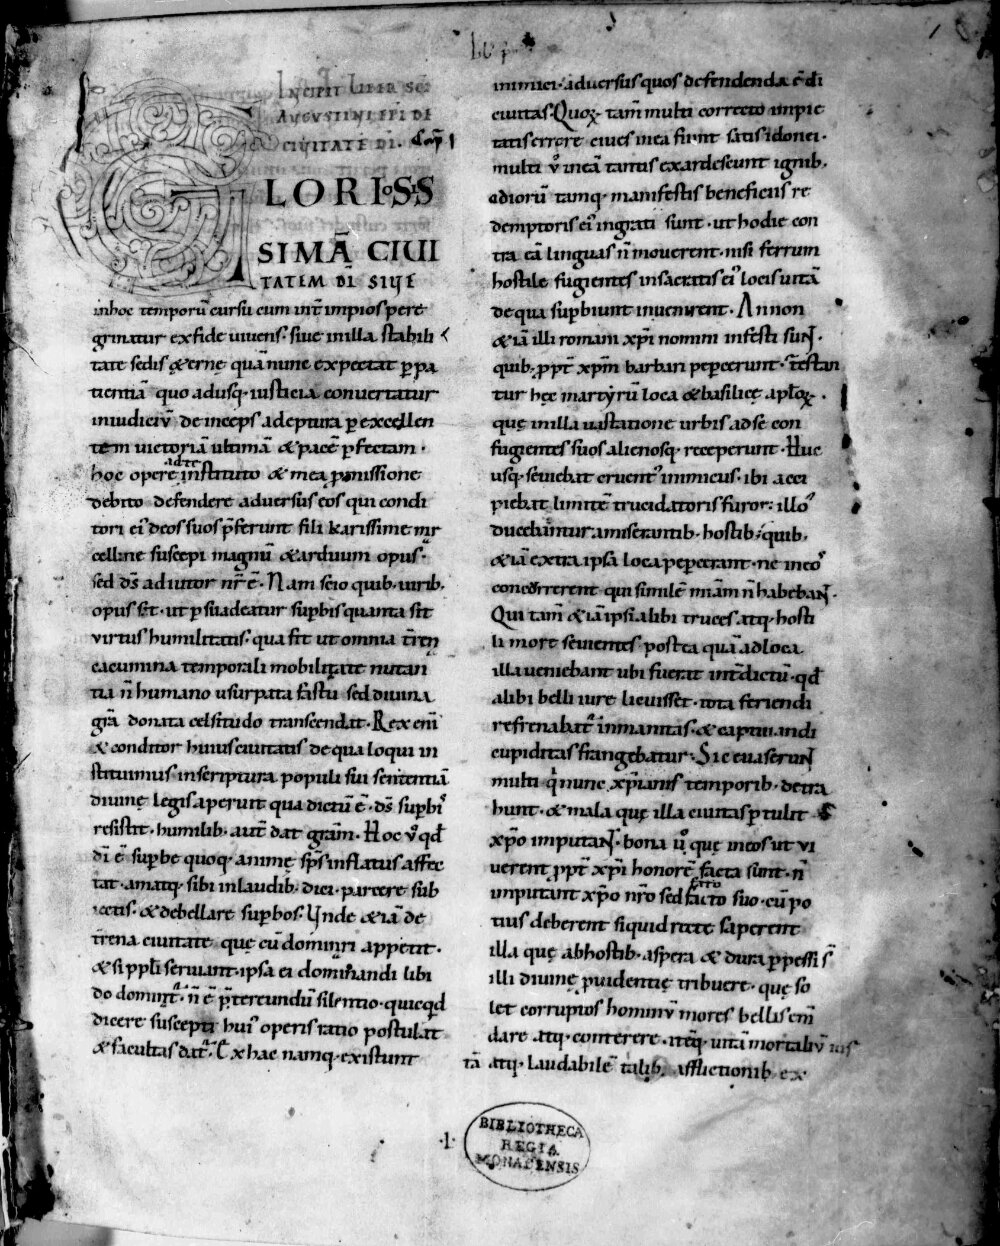 INCIPIT LIBER SCI
AUGUSTINI EPI DE
CIUITATE DI. Cap I
GLORIOSIS
SIMĀ CIUI
TATEM DĪ SIUE
inhoc temporū cursu cum int̄ impios pere
grinatur exfide uiuens. siue inilla stabili
tate sedis &ernę quā nunc expectat p̱ pa
tientiā quo adusq; iusticia conuertatur
iniudiciū deinceps adeptura p̱ excellen
tem uictoriā ultimā & pacē p̱fectam.
hoc opere ad te instituto & mea p̱missione
debito defendere aduersus eos qui condi
tori ei᾽ deos suos p̄ferunt fili karissime mar
celline suscepi magnū & arduum opus.
sed dˉs adiutor nr̄ ē. Nam scio quib; uirib;
opus sit. ut p̱suadeatur sup̱bis quanta sit
uirtus humilitatis. qua fit ut omnia t̄ren
cacumina temporali mobilitate nutan
tia n̄ humano usurpata fastu sed diuina
grā donata celsitudo transcendat. Rex enī
& conditor huius ciuitatis de qua loqui in
stituimus inscriptura populi sui sententiā
diuinę legis aperuit qua dictū ē. dˉs sup̱bi᾽
resistit. humilib; aut̄ dat grām. Hoc u᾽o qd̄
dī ē sup̱be quoq; animę sp̄s inflatus affec
tat. amatq; sibi inlaudib; dici. parcere sub
iectis. & debellare sup̱bos. Unde & iā de
t̄rena ciuitate quę cū dominari appetit.
& si pp̄li seruiant. ipsa ei dominandi libi
do dominat᾽. n̄ ē p̄tereundū silentio. quicqd̄
dicere suscepti hui᾽ operis ratio postulat
& facultas dat᾽. Ex hac namq; existunt
inimici. aduersus quos defendenda ē dī
ciuitas. Quoꝝ tam̄ multi correcto impie
tatis errore ciues inea fiunt satis idonei.
multi u᾽o ineā tantis exardescunt ignib;
odiorū tamq; manifestis beneficiis re
demptoris ei᾽ ingrati sunt. ut hodie con
tra eā linguas n̄ mouerent. nisi ferrum
hostile fugientes insacratis ei᾽ locis uitā
de qua sup̱biunt inuenirent. Annon
& iā illi romani xp̄i nomini infesti sunt.
quib; pp̄t xp̄m barbari pepercerunt. testan
tur hęc martyrū loca & basilicę ap̄loꝝ.
quę inilla uastatione urbis adse con
fugientes suos alienosq; receperunt. Huc
usq; seuiebat cruent᾽ inimicus. ibi acci
piebat limitē trucidatoris furor. illo᾽
ducebantur amiserantib; hostib; quib;
& iā extra ipsa loca pepercerant. ne ineo᾽
concurrerent qui similē miām n̄ habebant.
Qui tam̄ & iā ipsi alibi truces atq; hosti
li more seuientes. postea quā adloca
illa ueniebant ubi fuerat int̄dictū. qd̄
alibi belli iure licuisset. tota feriendi
refrenabat᾽ inmanitas. & captiuandi
cupiditas frangebatur. Sic euaserunt
multi qi nunc xp̄ianis temporib; detra
hunt. & mala quę illa ciuitas p̱tulit
xp̄o imputant. bona u᾽o quę ineos ut ui
uerent pp̄t xp̄i honorē facta sunt. n̄
imputant xp̄o nr̄o sed fato suo. cū po
tius deberent siquid recte saperent
illa quę abhostib; aspera & dura p̱pessi s̄
illi diuinę p̱uidentię tribuere. quę so
let corruptos hominū mores bellis em̄
dare atq; conterere. itēq; uitā mortaliū ius
tā atq; laudabilē talib; afflictionib; ex
.I.
BIBLIOTHECA
REGIA
MONACENSIS